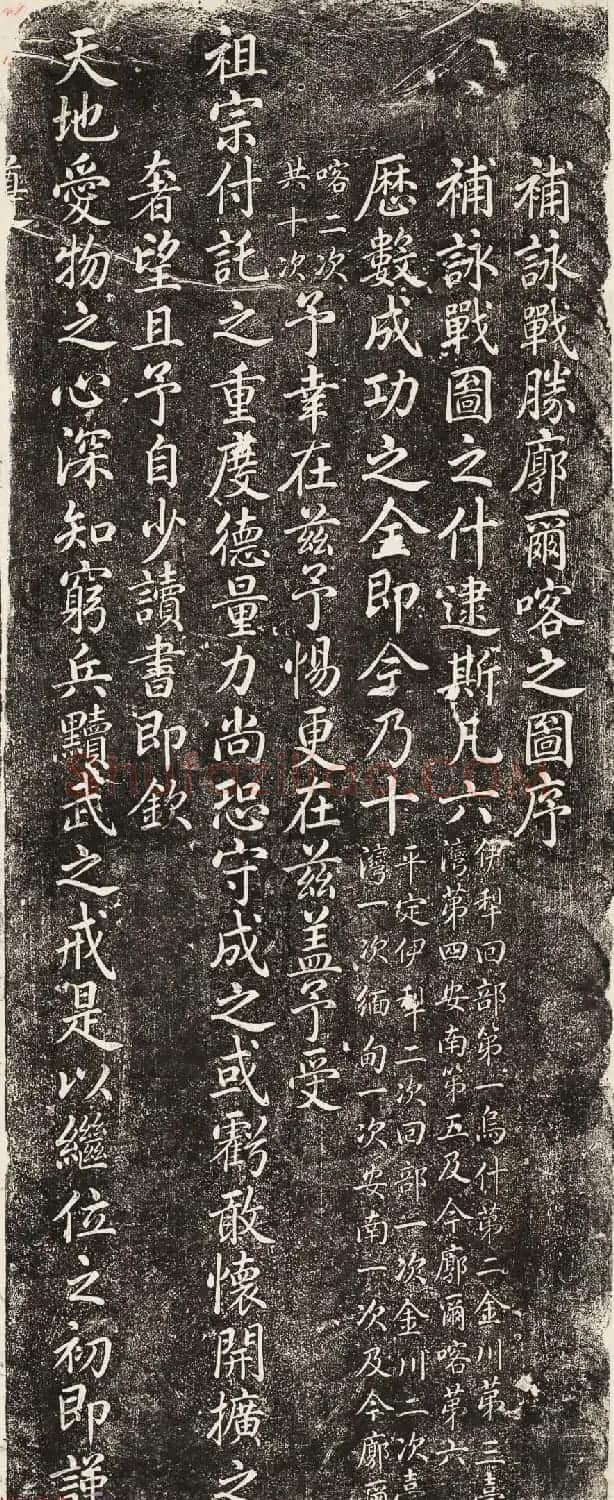 補詠戰勝廓爾喀之圖序
補詠戰圖之什逮斯凡六
伊犁回部第一烏什第二金川第三臺
灣第四安南第五及今廓爾喀第六
厯數成功之全即今乃十
平定伊犁二次回部一次金川二次臺
灣一次緬甸一次安南一次及今廓爾
喀二次
共十次
予幸在茲予惕更在茲盖予受
祖宗付託之重度德量力尚恐守成之或虧敢懷開擴之
奢望且予自少讀書即欽
天地愛物之心深知窮兵黷武之戒是以繼位之初即謹